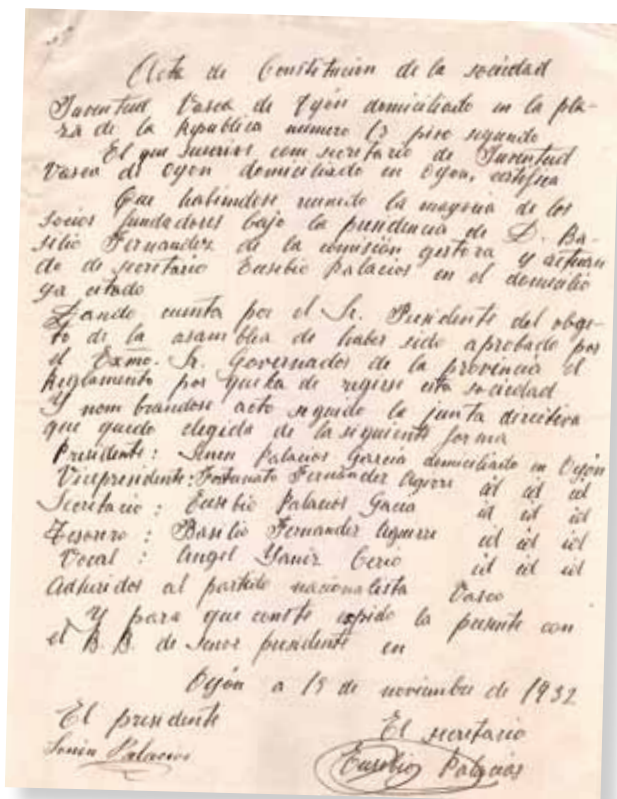 Acta de Constitucion de la sociedad
Juventud Vasca de Oyón domiciliado en la pla-
za de la Republica numero 13 piso segundo
El que suscrive com secretario de Juventud
Vasca de Oyon domiciliado en Oyon, certifica
Que habiendose reunido la mayoria de los
socios fundadores bajo la presidencia de D. Ba-
silio Fernandez de la comisión gestora y actuan
do de secretario Eusebio Palacios en el domicilio
ya citado
Dando cuenta por el Sr. Presidente del obge-
to de la asamblea de haber sido aprobado por
el Exmo. Sr. Governador de la provincia el
Reglamento por que ha de regirse esta sociedad
Y nombrandose acto seguido la junta directiva
que quedo elegida de la siguiente forma
Presidente: Senen Palacios Garcia domiciliado en Oyón
Vicepresidente: Fortunato Fernander Aguirre id id id
Secretario: Eusebio Palacios Garcia id id id
Tesorero: Basilio Fernander Aguirre id id id
Vocal: Angel Yaniz Cerio id id id
Adheridos al partido nacionalista Vasco
Y para que conste expido la presente con
el B. B. de Senor presidente en
Oyón a 15 de noviembre de 1932
El presidente El secretario
Senen Palacios Eusebio Palacios